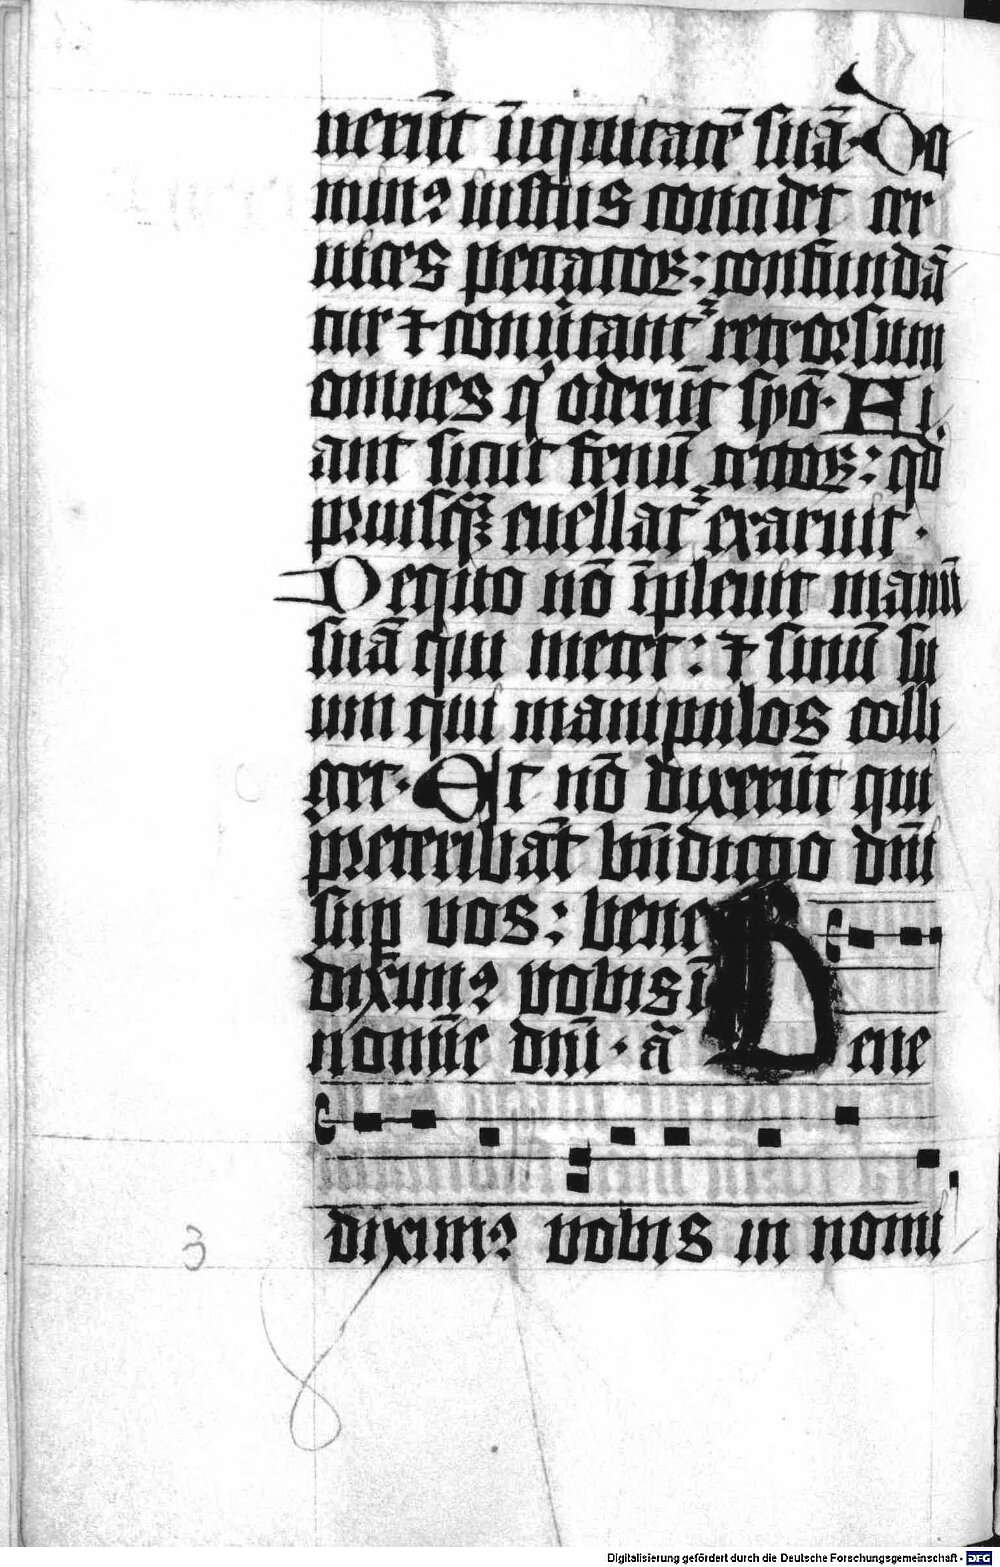 uerūt īiquitatē suā· Do
minꝰ iustus concidet cer
uices peccatoꝝ: confundā
tur ⁊ conūtantᷣ retrorsum
omnes q̇ oderūt syō· Fi
ant sicut fenū tectoꝝ: qđ
priusqꝫ̄ euellatᷣ exaruit·
De quo nō īpleuit manū
suā qui metet: ⁊ sinū su
um qui manipulos colli
get· Et nō dixerūt qui
preteribāt bn̄dictio dn̄i
suꝑ vos: bene
diximꝰ vobis ī
nomīe dn̄i· ā Bene
diximꝰ vobis in nomi
3
Digitalisierung gefördert durch die Deutsche Forschungsgemeinschaft - DFG